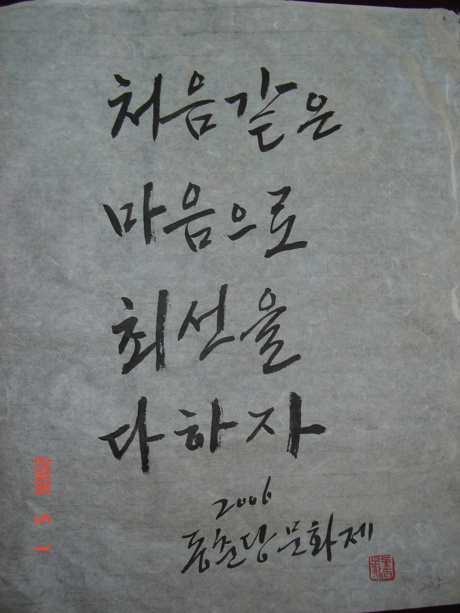 처음같은
마음으로
최선을
다하자
2006
동춘당문화제
2006 5 1